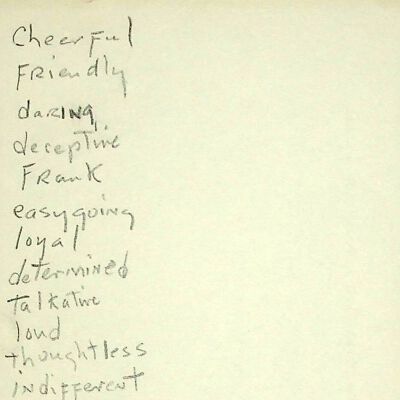 Cheerful
Friendly
daring
deceptive
Frank
easygoing
loyal
determined
talkative
loud
thoughtless
indifferent